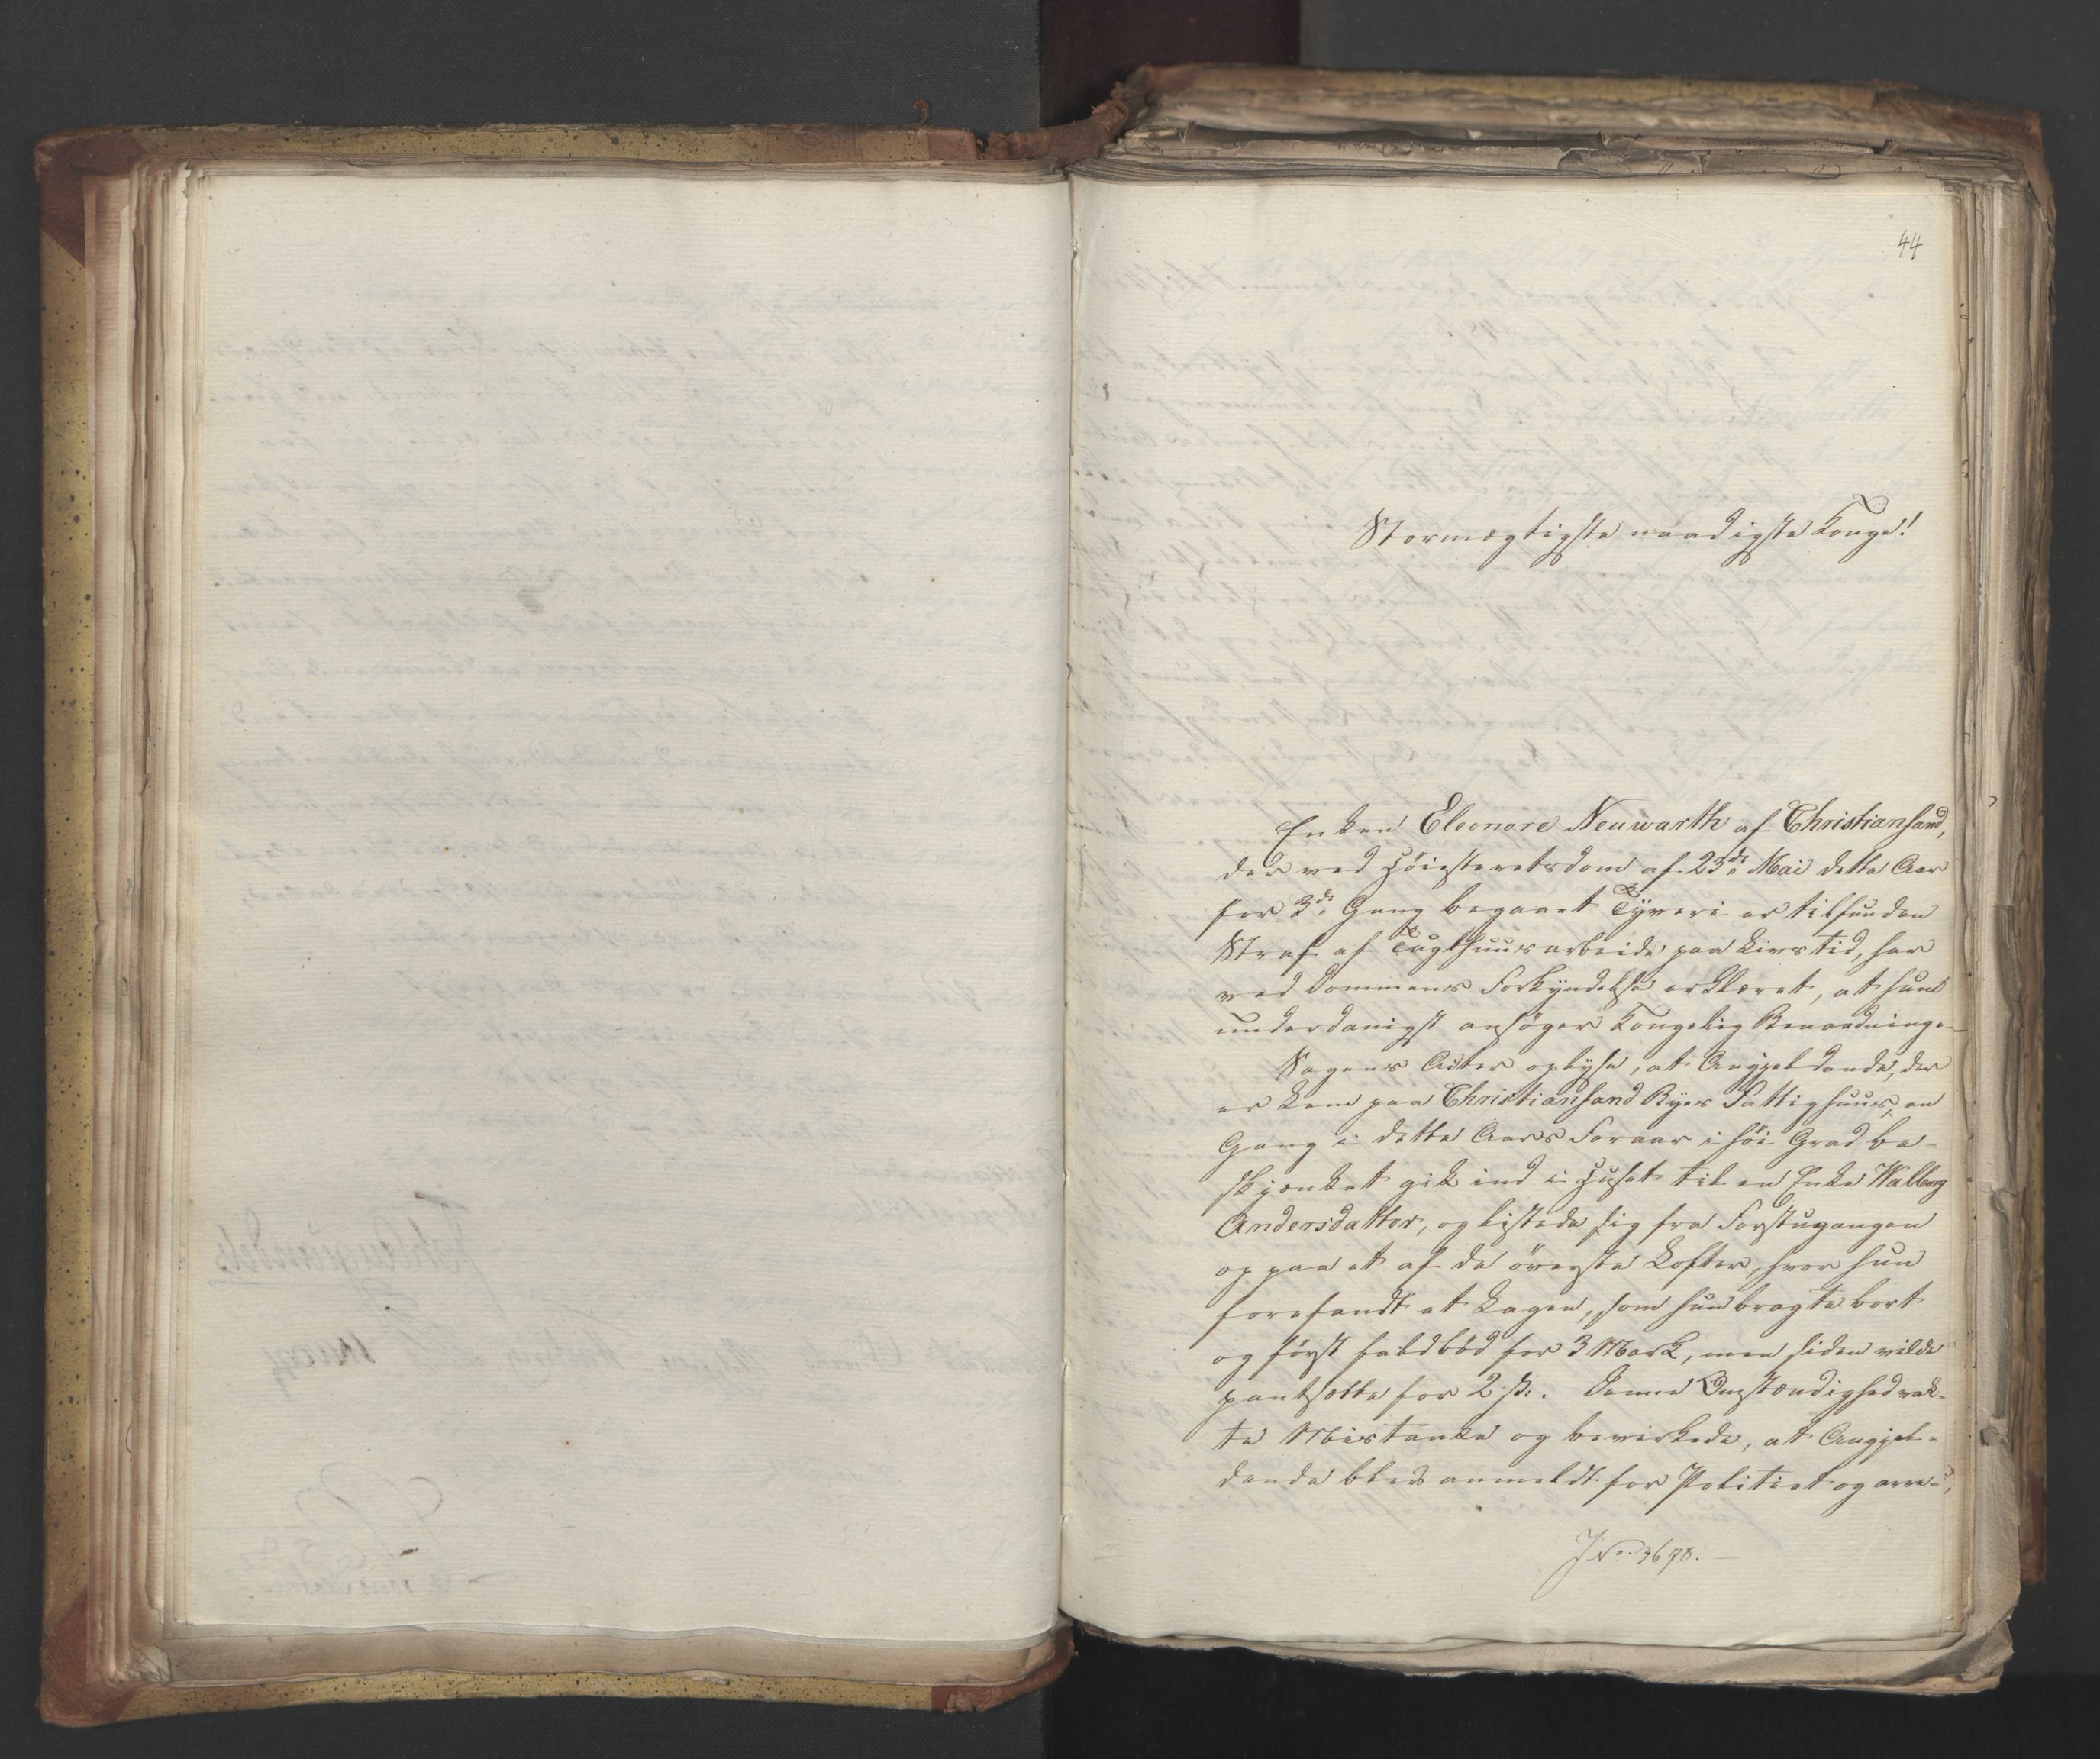 44
Stormægtigste naadigste Konge!
Enken Eleonore Neuwarth af Christiansand,
der ved Höiesteretsdom af 23de Mai dette Aar
for 3die Gang begaaet Tÿveri er tilfunden
Straf af Tugthuusarbeide paa Livstid, har
ved Dommens Forkyndelse erklæret, at hun
underdanigst ansöger Kongelig Benaadning.
Sagens Acter oplyse, at Angjeldende, der
er Lem paa Christiansand Byes Fattighuus, en
Gang i dette Aars Foraar i höi Grad be-
skjænket gik ind i Huset til en Enke Walborg
Andersdatter, og listede sig fra Forstugangen
op paa et af de överste Lofter, hvor hun
forefandt et Lagen, som hun bragte bort
og först faldböd for 3 Mark, men siden vilde
pantsætte for 2 ß. Denne Omstændighed vak-
te Mistanke og bevirkede, at Angjel-
dende blev anmeldt for Politiet og arre-
J No. 3678.